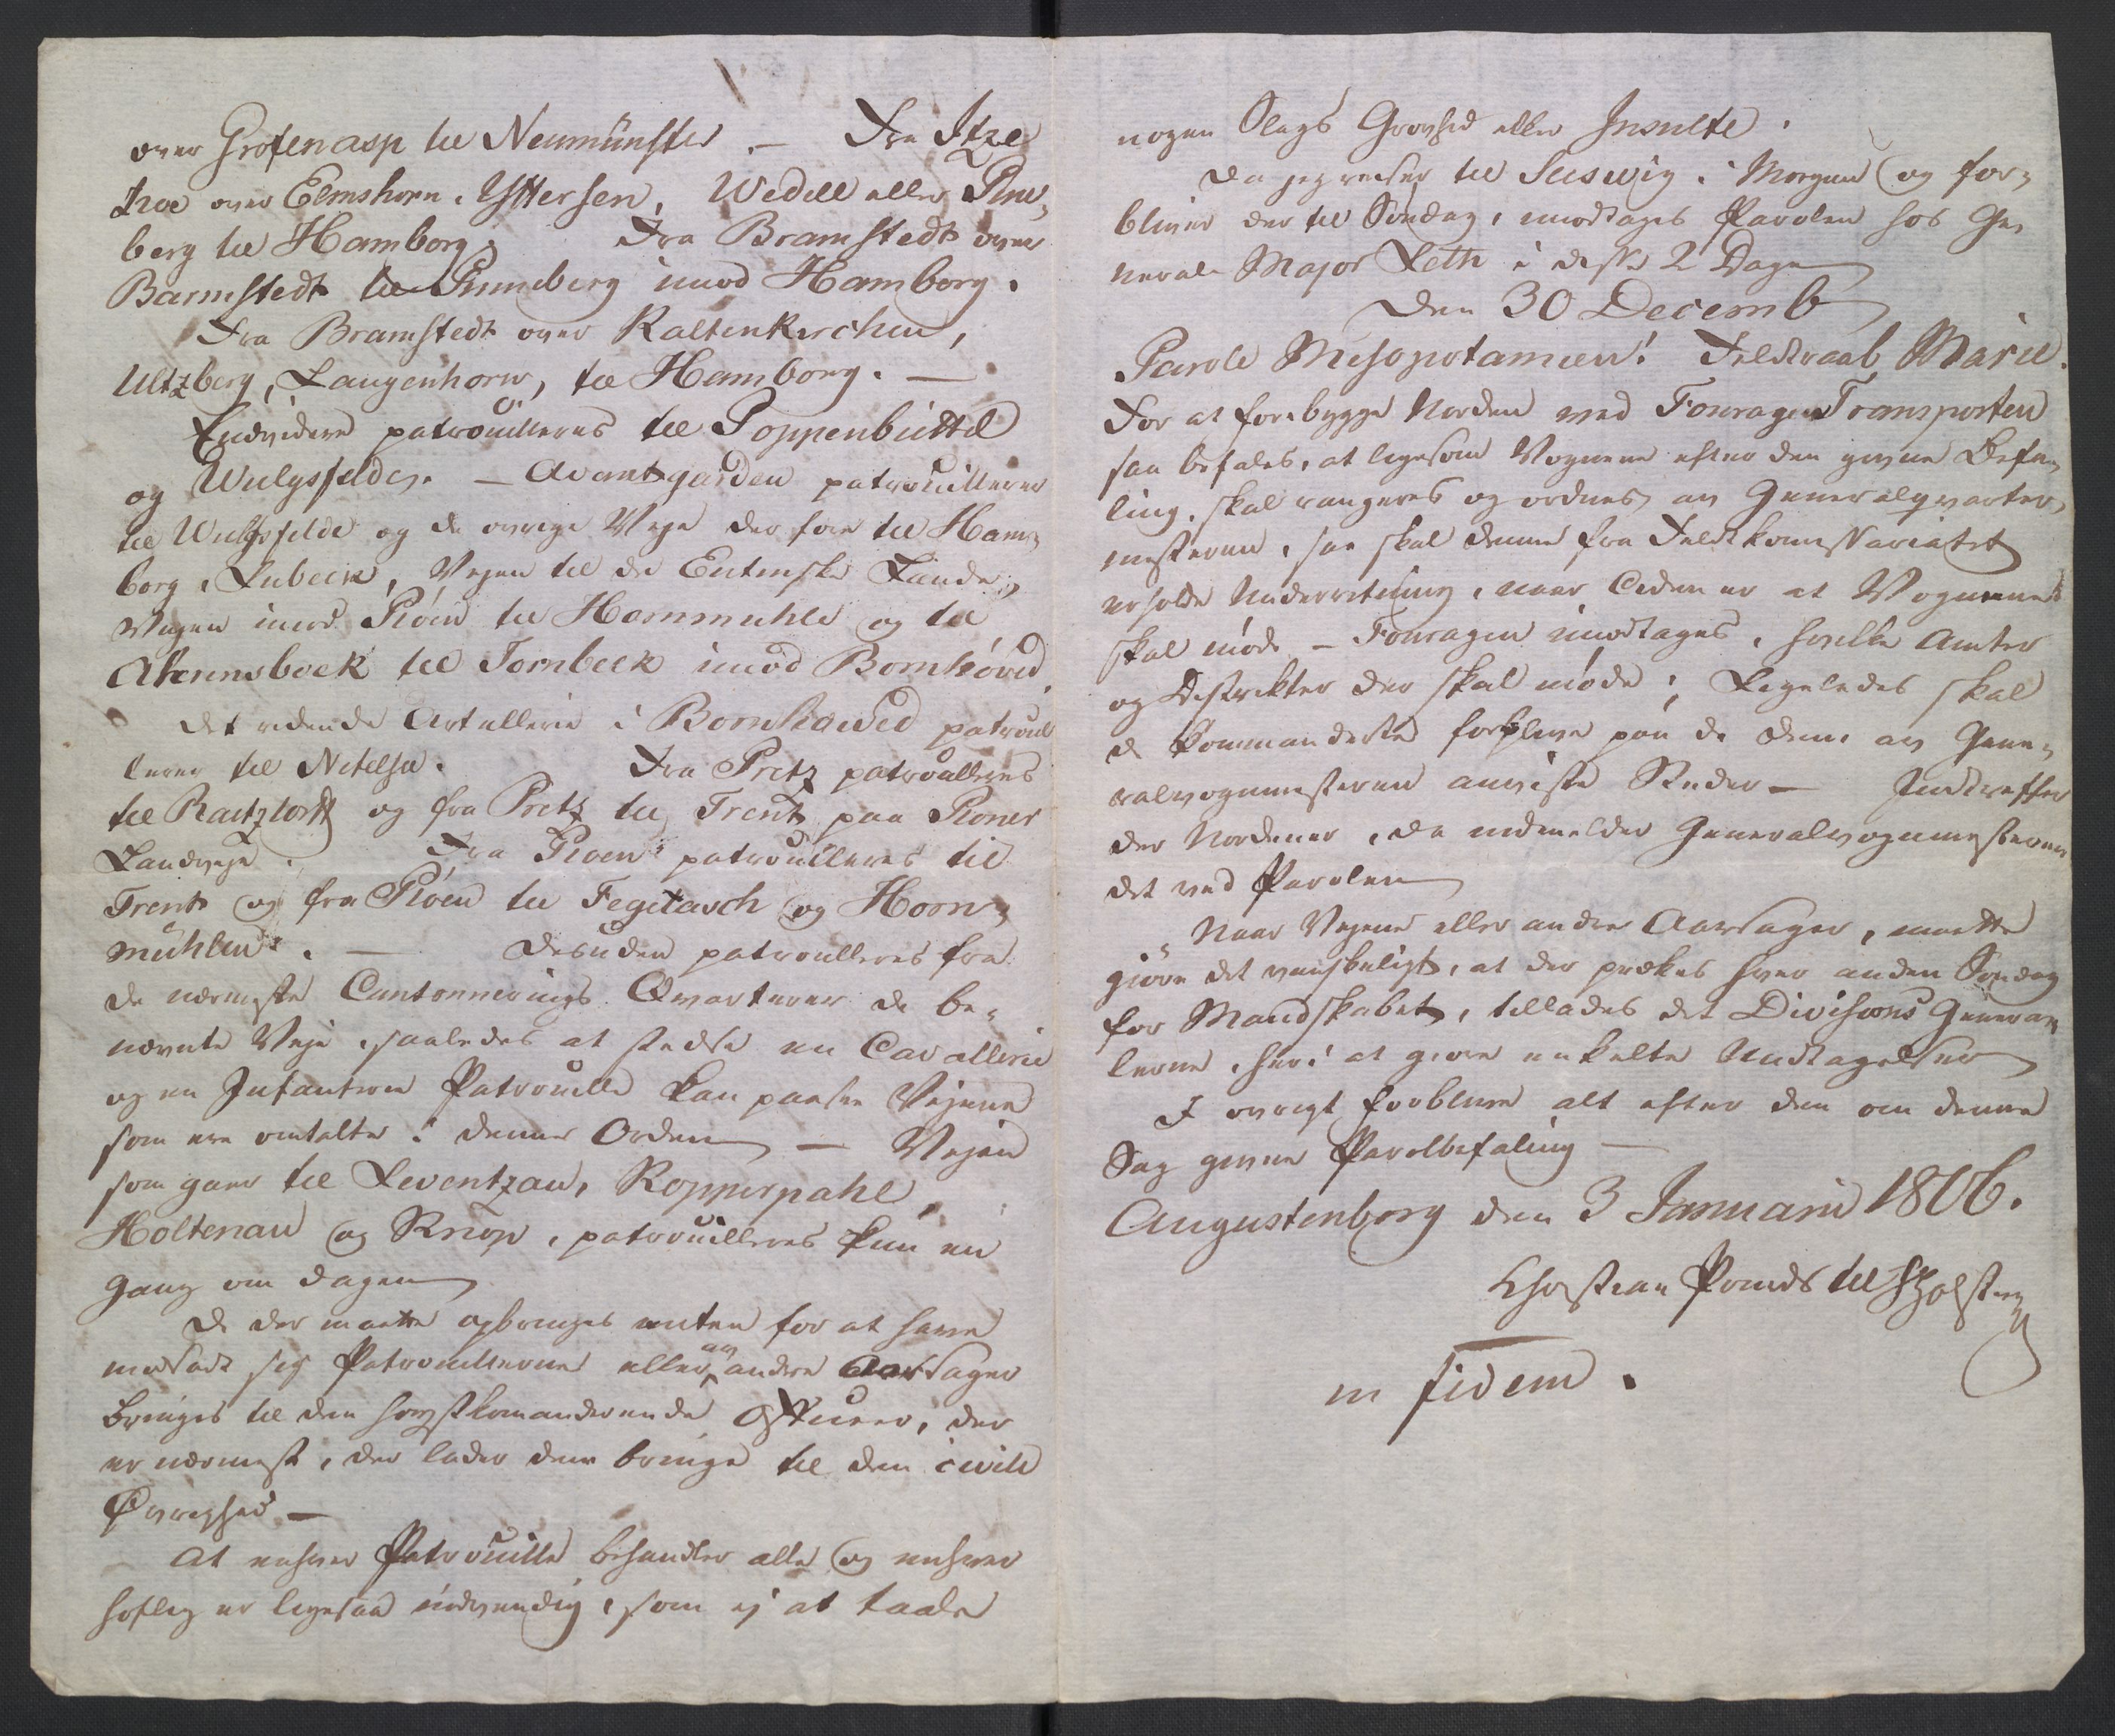 over Grosenasp til Neumünster. — Fra Itze
hoe over Elmshorn, Yttersen, Wedell eller Pinne-
berg til Hamborg. Fra Bramstedt over
Barmstedt til Pinneberg imod Hamborg.
Fra Bramstedt over Kaltenkirchen,
Ultzberg, Langenhorn, til Hamborg. —
Endvidere patrouilleres til Poppenbüttel
og Wulgsfelde. — Avantgarden patrouillerer
til Wulgsfelde og de øvrige Veje der føre til Ham-
borg, Lubeck, Vejen til de Eutinske Lande,
Vejen imod Pløen til Hornmuhle og til
Ahrensboek til Tornbeck imod Bornhöved
Det ridende Artillerie i Bornhöved patrouil
lerer til Nehelse. Fra Pretz patroulleres
til Rastztorff og fra Pretz til Trent paa Ploner
Landveje. Fra Ploen patrouilleres til
Trent og fra Pløen til Fegetasch og Horn-
mühlen. — Desuden patroulleres fra
de nærmeste Cantonnerings Qvarterer de be-
nævnte Veje, saaledes at stedse en Cavallerie
og en Infanterie Patrouille kan passere Vejene
som ere omtalte i denne Orden — Vejen
som gaaer til Leventzau, Kopperpahl,
Holtenau og Knop, patrouilleres kun en
gang om Dagen
De der maatte opbringes enten for at have
modsadt sig Patrouillerne eller av andre Aarsager
bringes til den høystkomanderende Officeer, der
er nærmest, der lader dem bringe til den civile
Øvrighed —
At enhver Patrouille behandler alle og enhver
høflig er ligesaa nødvendig, som ej at taale
nogen Slags Grovhed eller Insulte.
Da jeg reiser til Slesvig i Morgen og for-
bliver der til Søndag, modtages Parolen hos Ge-
neral Major Leth i disse 2 Dage
Den 30 Decemb
Parole Mesopotamien! Feldtraab Marie.
For at forebygge Uorden ved Fourage Transporten
saa befales, at ligesom Vognene efter den givne Befa-
ling, skal rangeres og ordnes av Generalqvarteer-
mesteren, saa skal denne fra Feldtkomissariatet
erholde Underretning, naar Tiden er at Vognene
skal møde — Fouragen modtages, hvilke Amter
og Districkter der skal møde; Ligeledes skal
de Kommanderte forblive paa de dem av Gene-
ralvognmesteren anviste Steder — Indtreffer
der Uordener, da indmelder Generalvognmesteren
det ved Parolen
Naar Vejene eller andre Aarsager, maatte
giøre det vanskeligt, at der prækes hver anden Søndag
for Mandskabet, tillades det Divisions Genera-
lerne, heri at giøre enkelte Undtagelser
I øvrigt forblive alt efter den om denne
Sag givne Parolbefaling —
Augustenborg den 3 Januarii 1806.
Christian Prinds til S Holsten
in fidem.